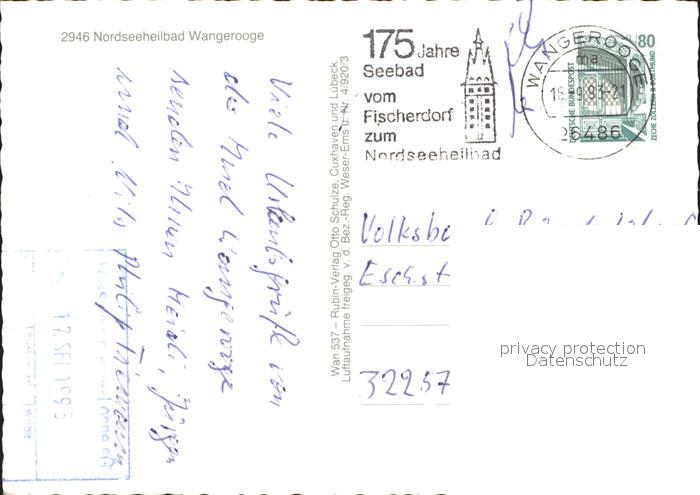 2946 Nordseeheilbad Wangerooge
175 Jahre
Seebad
vom
Fischerdorf
zum
Nordseeheilbad
WANGEROOGE
ma
26486
80
DEUTSCHE BUNDESPOST
ZECHE ZOLLERN II DORTMUND
Wan 537 – Rubin-Verlag Otto Schulze, Cuxhaven und Lübeck
Luftaufnahme freigeg. v. d. Bez.-Reg. Weser-Ems u. Nr. 4/920/3
Viele Urlaubsgrüße von
der Insel Wangerooge
senden Ihnen Heidi, Jürgen
und Nils Philip
17. SEP. 1993
Volksba
Eschst
32257
privacy protection
Datenschutz